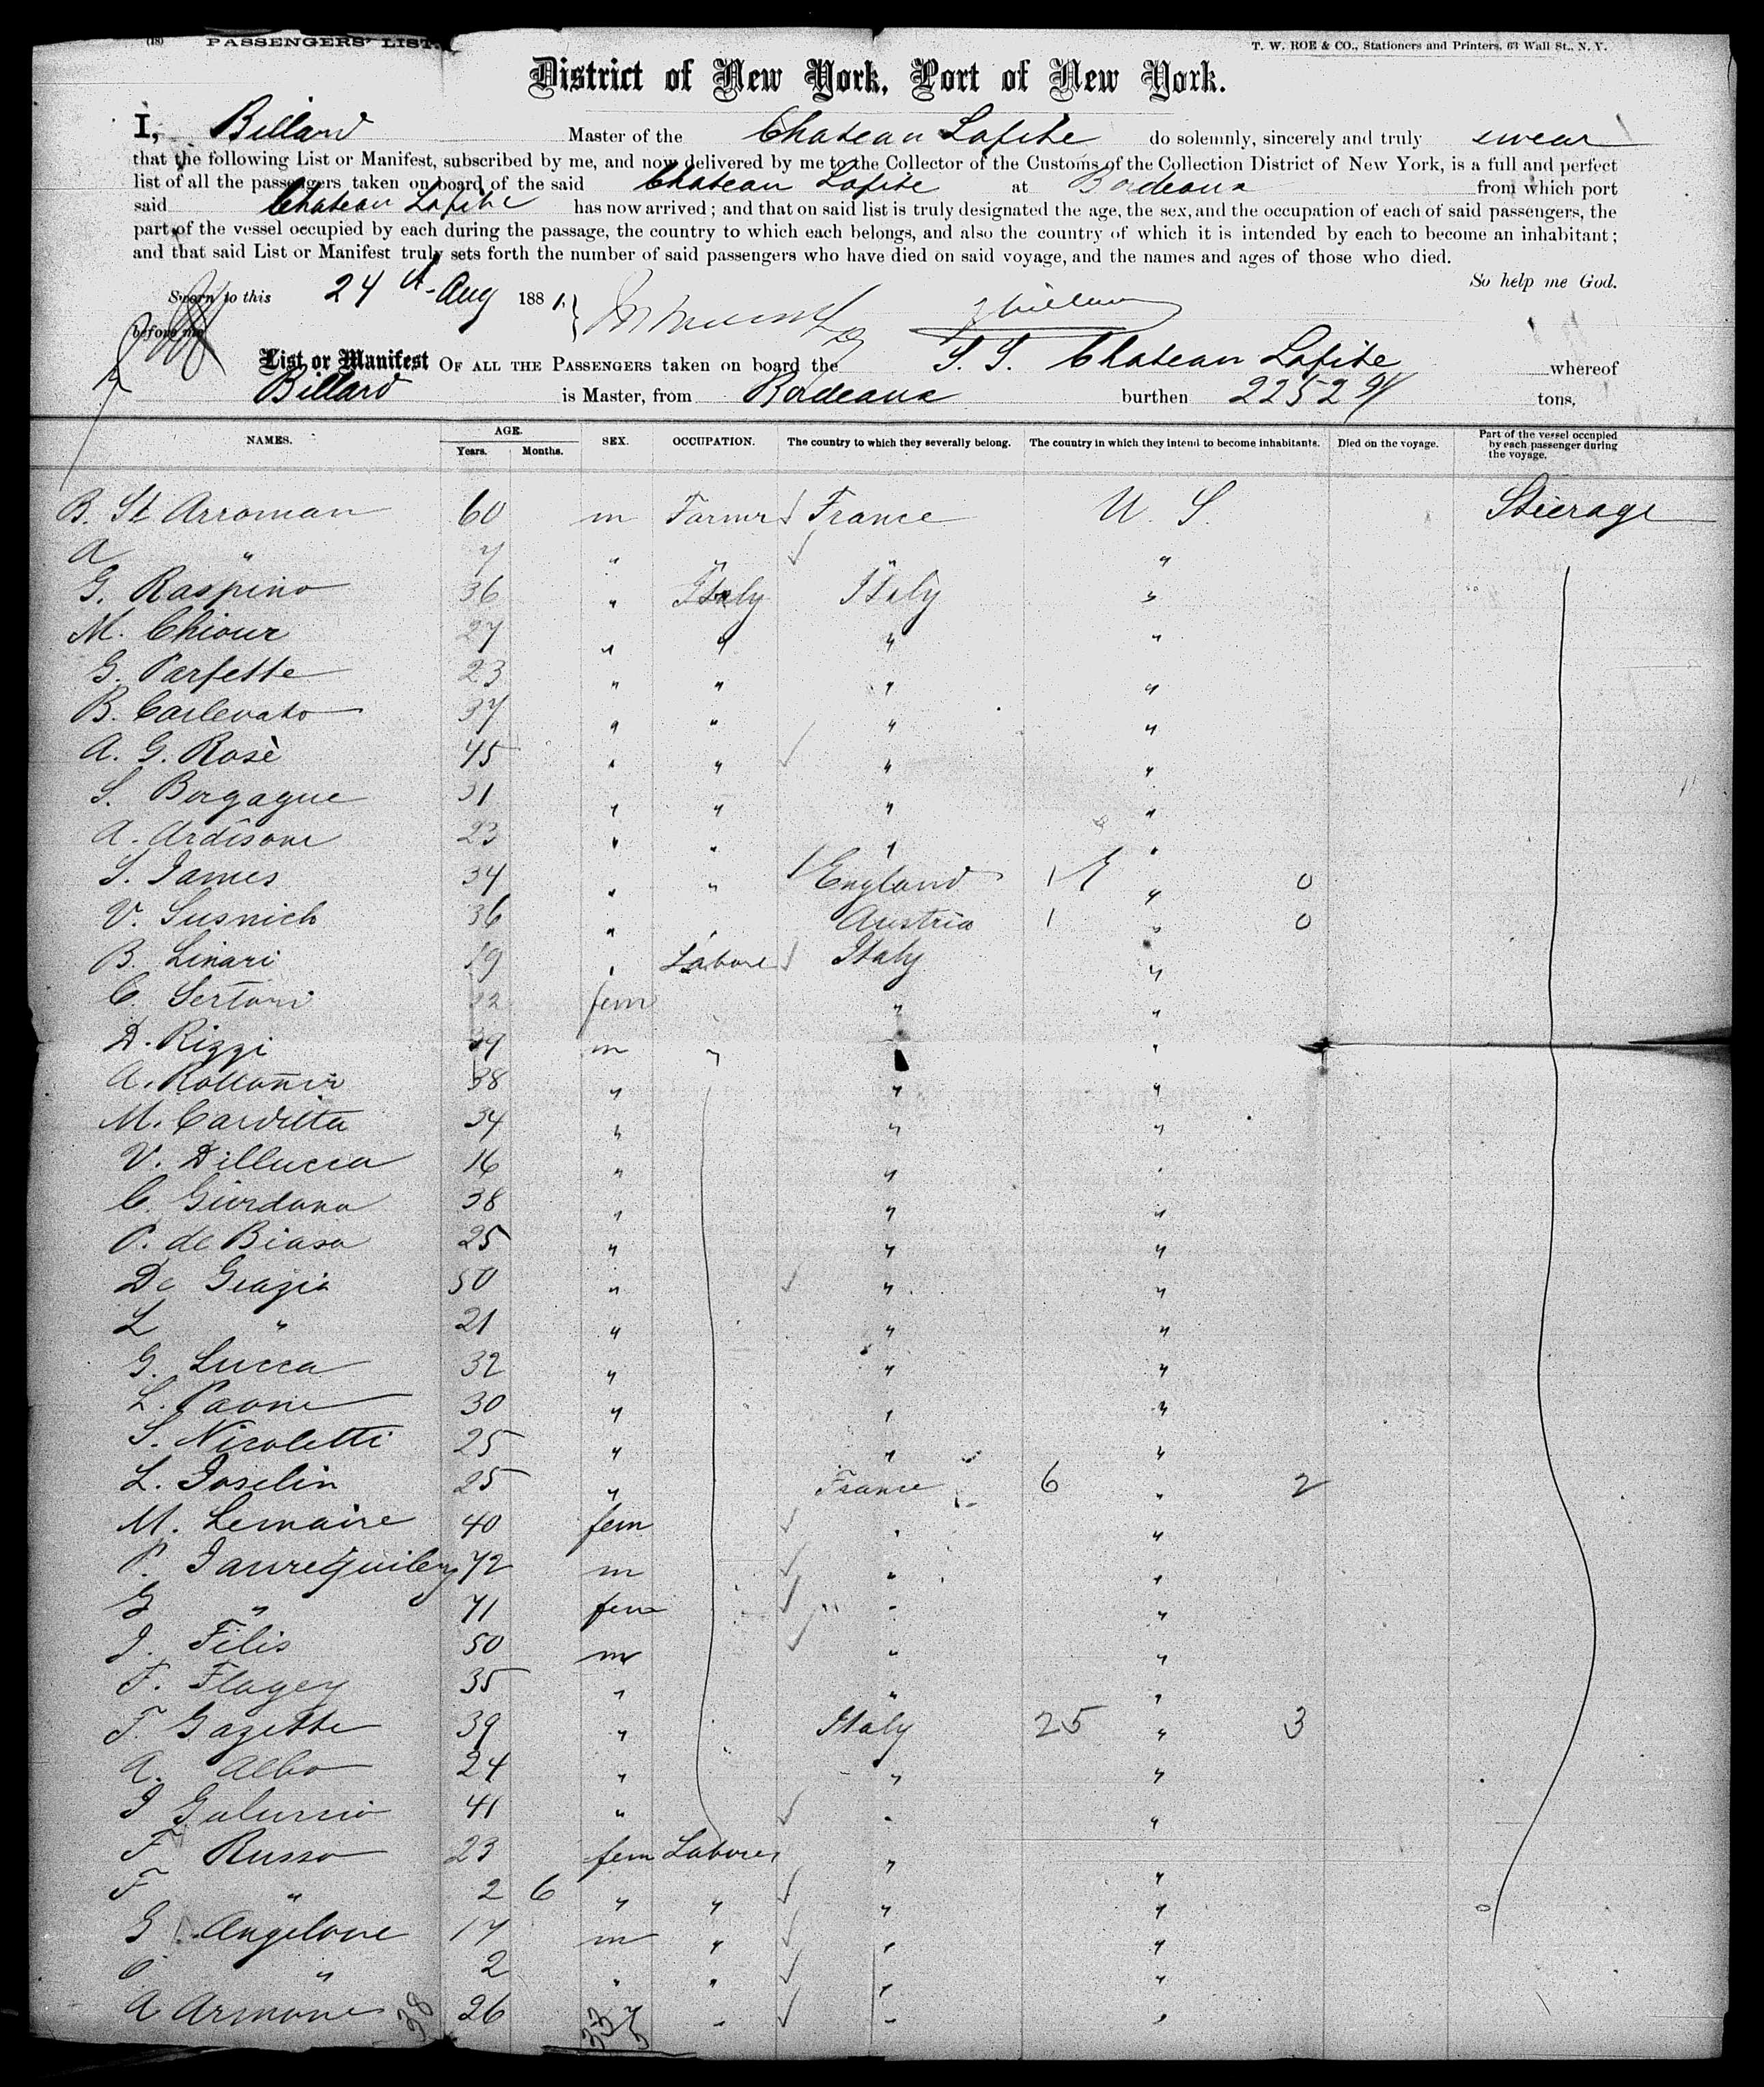 (18) PASSENGERS' LIST.
T. W. ROE & CO., Stationers and Printers, 63 Wall St., N. Y.
District of New York, Port of New York.
I, Billard Master of the Chateau Lafite do solemnly, sincerely and truly swear
that the following List or Manifest, subscribed by me, and now delivered by me to the Collector of the Customs of the Collection District of New York, is a full and perfect
list of all the passengers taken on board of the said Chateau Lafite at Bordeaux from which port
said Chateau Lafite has now arrived; and that on said list is truly designated the age, the sex, and the occupation of each of said passengers, the
part of the vessel occupied by each during the passage, the country to which each belongs, and also the country of which it is intended by each to become an inhabitant;
and that said List or Manifest truly sets forth the number of said passengers who have died on said voyage, and the names and ages of those who died.
So help me God.
Sworn to this 24th Aug 1881.
before me
List or Manifest OF ALL THE PASSENGERS taken on board the S. S. Chateau Lafite whereof
Billard is Master, from Bordeaux burthen 2252 tons.
NAMES. AGE. Years. Months. SEX. OCCUPATION. The country to which they severally belong. The country in which they intend to become inhabitants. Died on the voyage. Part of the vessel occupied by each passenger during the voyage.
B. St Arroman 60 m Farmer France U. S. Steerage
A " 7 " " " "
G. Raspino 36 " Italy Italy "
M. Chiour 27 " " " "
G. Parfette 23 " " " "
B. Carlevato 37 " " " "
A. G. Rosè 45 " " " "
S. Bergague 31 " " " "
A. Ardisone 23 " " " "
S. James 34 " " England 1 " 0
V. Susnich 36 " " Austria 1 " 0
B. Linari 19 " Labore Italy "
C. Sertoni 12 fem " "
D. Rizzi 39 m " " "
A. 38 " " "
M. Cardetta 34 " " "
V. Dillucca 16 " " "
C. Giordano 38 " " "
P. de Biasa 25 " " "
De Grazia 50 " " "
L " 21 " " "
G. Lucca 32 " " "
L. Paone 30 " " "
S. Nicoletti 25 " " "
L. Joselin 25 " France 6 " 2
M. Lemaire 40 fem " "
P. Jaureguilery 72 m " "
G " 71 fem " "
J. Filis 50 m " "
F. Flagey 35 " " "
F. Gazette 39 " Italy 25 " 3
A. Albo 24 " " "
J 41 " " "
F Russo 23 fem Laborer " "
F " 2 6 " " " "
G Angelone 17 m " " "
C. " 2 " " " "
A Armone 26 " " "
38